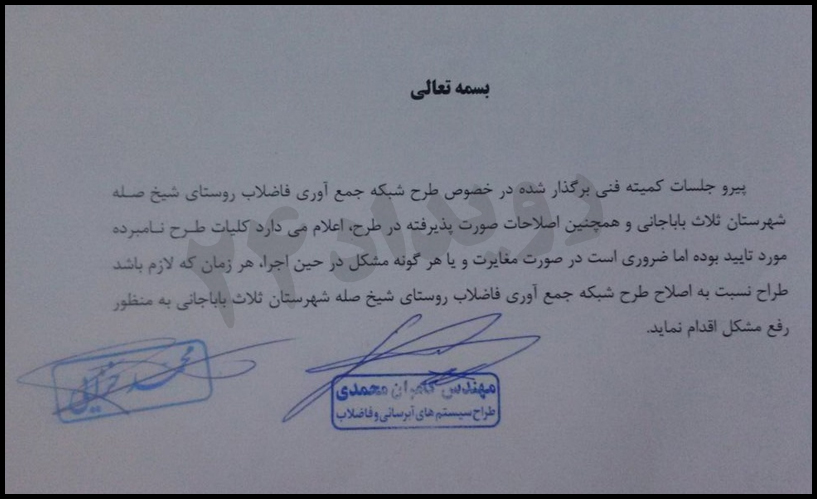 بسمه تعالی
پیرو جلسات کمیته فنی برگذار شده در خصوص طرح شبکه جمع آوری فاضلاب روستای شیخ صله
شهرستان ثلاث باباجانی و همچنین اصلاحات صورت پذیرفته در طرح، اعلام می دارد کلیات طرح نامبرده
مورد تایید بوده اما ضروری است در صورت مغایرت و یا هر گونه مشکل در حین اجرا، هر زمان که لازم باشد
طراح نسبت به اصلاح طرح شبکه جمع آوری فاضلاب روستای شیخ صله شهرستان ثلاث باباجانی به منظور
رفع مشکل اقدام نماید.
مهندس کامران محمدی
طراح سیستم های آبرسانی و فاضلاب
محمد
رویداد۲۴